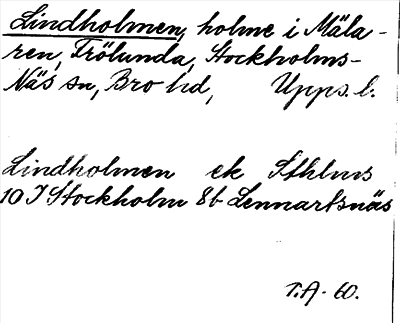 Lindholmen, holme i Mäla-
ren, Frölunda, Stockholms-
Näs sn, Bro hd, Upps. l.
Lindholmen ek Sthlms
10 I Stockholm 8b Lennartsnäs
T.A. 60.